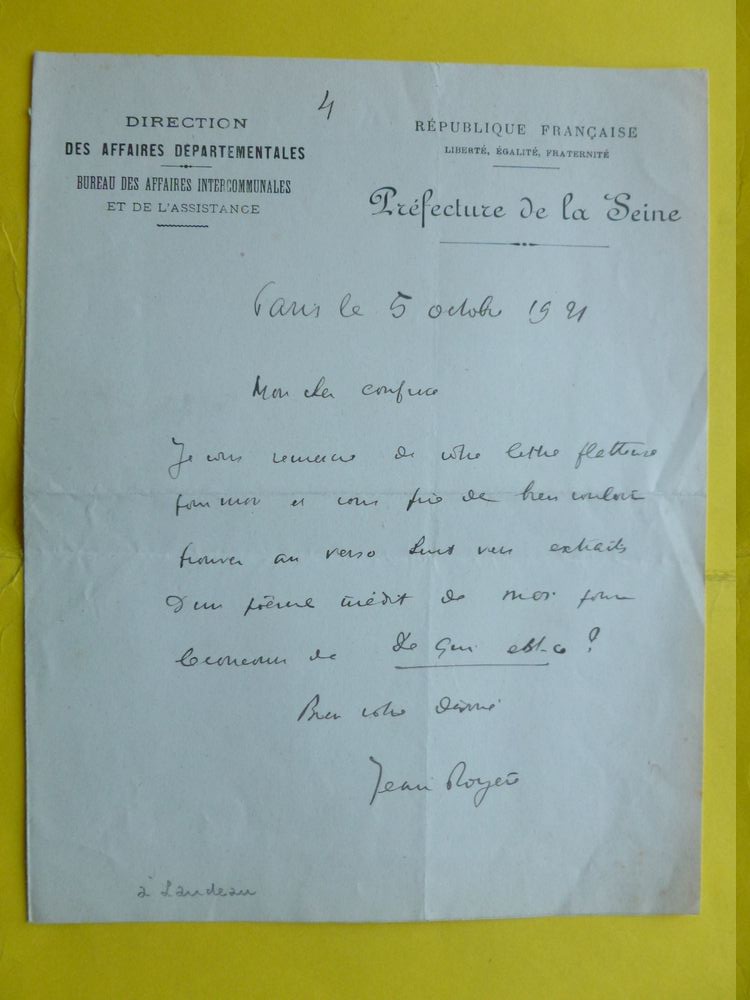 4
DIRECTION
DES AFFAIRES DÉPARTEMENTALES
BUREAU DES AFFAIRES INTERCOMMUNALES
ET DE L'ASSISTANCE
RÉPUBLIQUE FRANÇAISE
LIBERTÉ, ÉGALITÉ, FRATERNITÉ
Préfecture de la Seine
Paris le 5 octobre 1921
Mon cher confrère
Je vous remercie de votre lettre flatteuse
pour moi et vous prie de bien vouloir
trouver au verso huit vers extraits
d'un poème inédit de moi pour
le concours de De Qui est-ce ?
Bien votre dévoué
Jean Royère
à Landeau